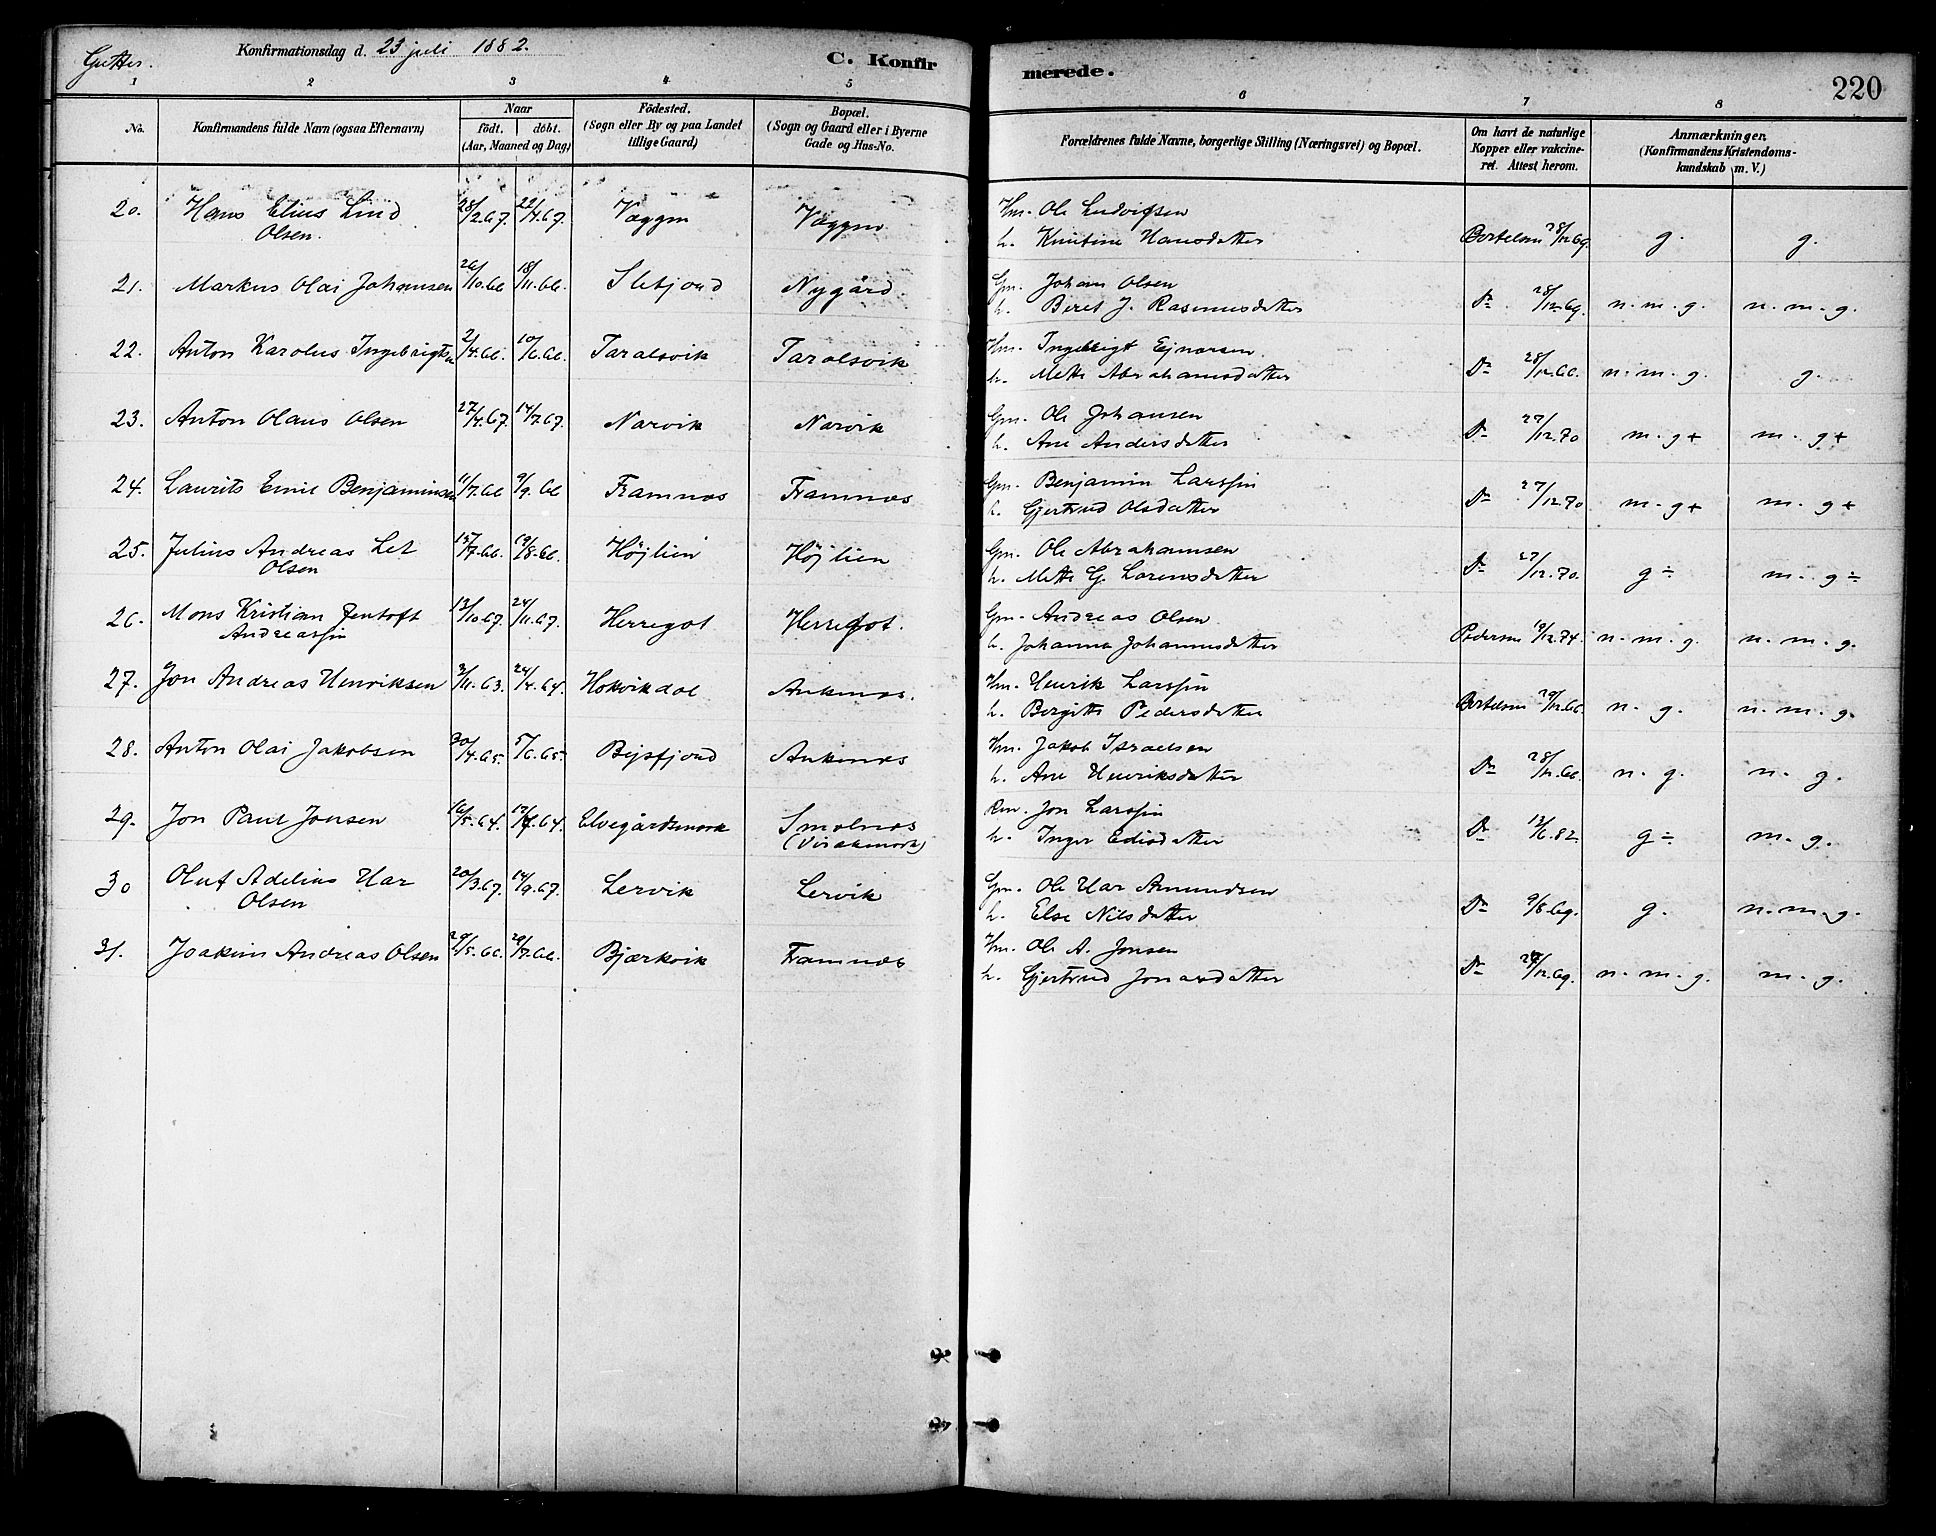 Gutter. Konfirmationsdag d. 23 juli 1882. C. Konfirmerede. 220
1 2 3 4 5 6 7 8
No. Konfirmandens fulde Navn (ogsaa Efternavn) Naar födt. döbt. (Aar, Maaned og Dag) Födested. (Sogn eller By og paa Landet tillige Gaard) Bopæl. (Sogn og Gaard eller i Byerne Gade og Hus-No. Forældrenes fulde Navne, borgerlige Stilling (Næringsvei) og Bopæl. Om havt de naturlige Kopper eller vakcineret. Attest herom. Anmærkninger. (Konfirmandens Kristendomskundskab m. V.)
20. Hans Elius Lind 28/2.67. 22/4.67. Væggen Væggen Hm. Ole Ludvigsen
Olsen. h. Knutine Hansdatter Bertelsen 28/12.69. g. g.
21. Markus Olai Johansen 26/10.66 18/11.66. Sletjord Nygård Gm. Johan Olsen
h. Beret J. Rasmusdatter Do 28/12.69. n.m.g. n.m.g.
22. Anton Karolus Ingebrigtsen 2/4.66. 10/6.66. Taralsvik Taralsvik Hm. Ingebrigt Ejnarsen
h. Mette Abrahamsdatter Do 28/12.66. n.m.g. g.
23. Anton Olaus Olsen 27/4.67. 14/7.67. Narvik Narvik Gm. Ole Johansen
h. Ane Andersdatter Do 27/12.70 m.g+ m.g+
24. Laurits Emil Benjaminsen 11/7.66 9/9.66 Framnæs Framnæs Gm. Benjamin Larssøn
h. Gjertrud Olsdatter Do 27/12.70 m.g+ m.g+
25. Julius Andreas Let 15/7.66. 19/8.66. Højlien Højlien Gm. Ole Abrahamsen
Olsen h. Mette G. Lorensdatter Do 27/12.70. g÷ m.g÷
26. Mons Kristian Jentoft 13/10.67. 24/11.67. Herregot Herregot. Gm. Andreas Olsen
Andreassøn h. Johanna Johannesdatter Pedersen 19/12.74. n.m.g. n.m.g.
27. Jon Andreas Henriksen 3/11.63. 24/4.64. Hokvikdal Ankenæs. Hm. Henrik Larssøn
h. Bergitte Pedersdatter Bertelsen 29/12.66. n.g. n.m.g.
28. Anton Olai Jakobsen 30/4.65. 5/6.65. Bejsfjord Ankenæs Hm. Jakob Israelsen
h. Ane Henriksdatter Do 28/12.66. n.g. n.g.
29. Jon Paul Jonsen 16/5.64. Elvegårdsmark Smalnæs Rm. Jon Larssøn
h. Inger Do 12/6.82. g÷ m.g.
30 Oluf Adelius Uar 20/3.67. 14/9.67. Lervik Lervik Gm. Ole Uar Amundsen
Olsen h. Else Nilsdatter Do 9/8.69. g. n.m.g.
31. Joakim Andreas Olsen 29/5.66. 29/7.66. Bjærkvik Framnæs Hm. Ole A. Jonsen
h. Gjertrud Jonasdatter Do n.m.g. m.g.